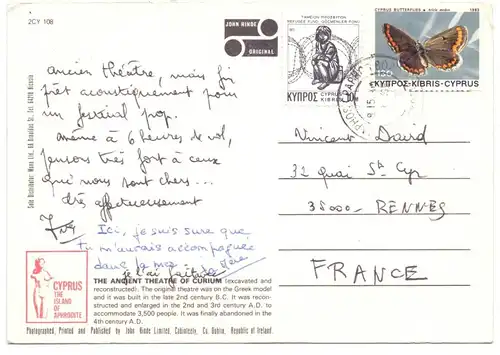 2CY 108
JOHN HINDE
ORIGINAL
ancien théâtre, mais foi
prêt acoustiquement pour
un festival pop.
même à 6 heures de vol,
pensons très fort à ceux
qui nous sont chers...
très affectueusement
Ici, je suis sure que
tu m'aurais accompagnée
dans la mer
je l'ai faite
CYPRUS
THE
ISLAND OF
APHRODITE
THE ANCIENT THEATRE OF CURIUM (excavated and
reconstructed). The original theatre was on the Greek model
and it was built in the late 2nd century B.C. It was recon-
structed and enlarged in the 2nd and 3rd century A.D. to
accommodate 3,500 people. It was finally abandoned in the
4th century A.D.
Photographed, Printed and Published by John Hinde Limited, Cabinteely, Co. Dublin, Republic of Ireland.
REFUGEE FUND
ΚΥΠΡΟΣ
CYPRUS
KIBRIS
CYPRUS BUTTERFLIES
1983
ΚΥΠΡΟΣ-KIBRIS-CYPRUS
Vincent David
32 Quai St Cyr
35000 RENNES
FRANCE